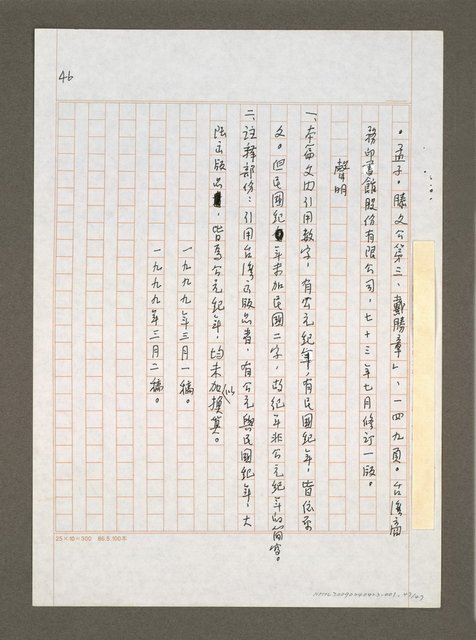 46
。孟子。滕文公第三、戴勝章」、一四九頁。台灣商
務印書館股份有限公司,七十三年七月修訂一版。
聲明
一、本篇文內引用數字,有公元紀年,有民國紀年,皆依原
文。但民國紀年未加民國二字,故紀年非公元紀年的簡寫。
二、註釋部份:引用台灣出版品者,有公元與民國紀年,大
陸出版品,皆為公元紀年,均未加以換算。
一九九九年三月一稿。
一九九九年三月二稿。
25×10=300 86.5.100本